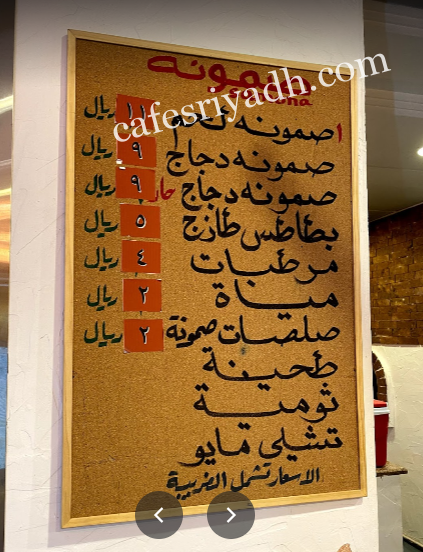 صمونه
cafesriyadh.com
صمونه لحم ١١ ريال
صمونه دجاج ٩ ريال
صمونه دجاج حار ٩ ريال
بطاطس طازج ٥ ريال
مرطبات ٤ ريال
مياة ٢ ريال
صلصات صمونة ٢ ريال
طحينة
ثومية
تشيلي مايو
الاسعار تشمل الضريبة